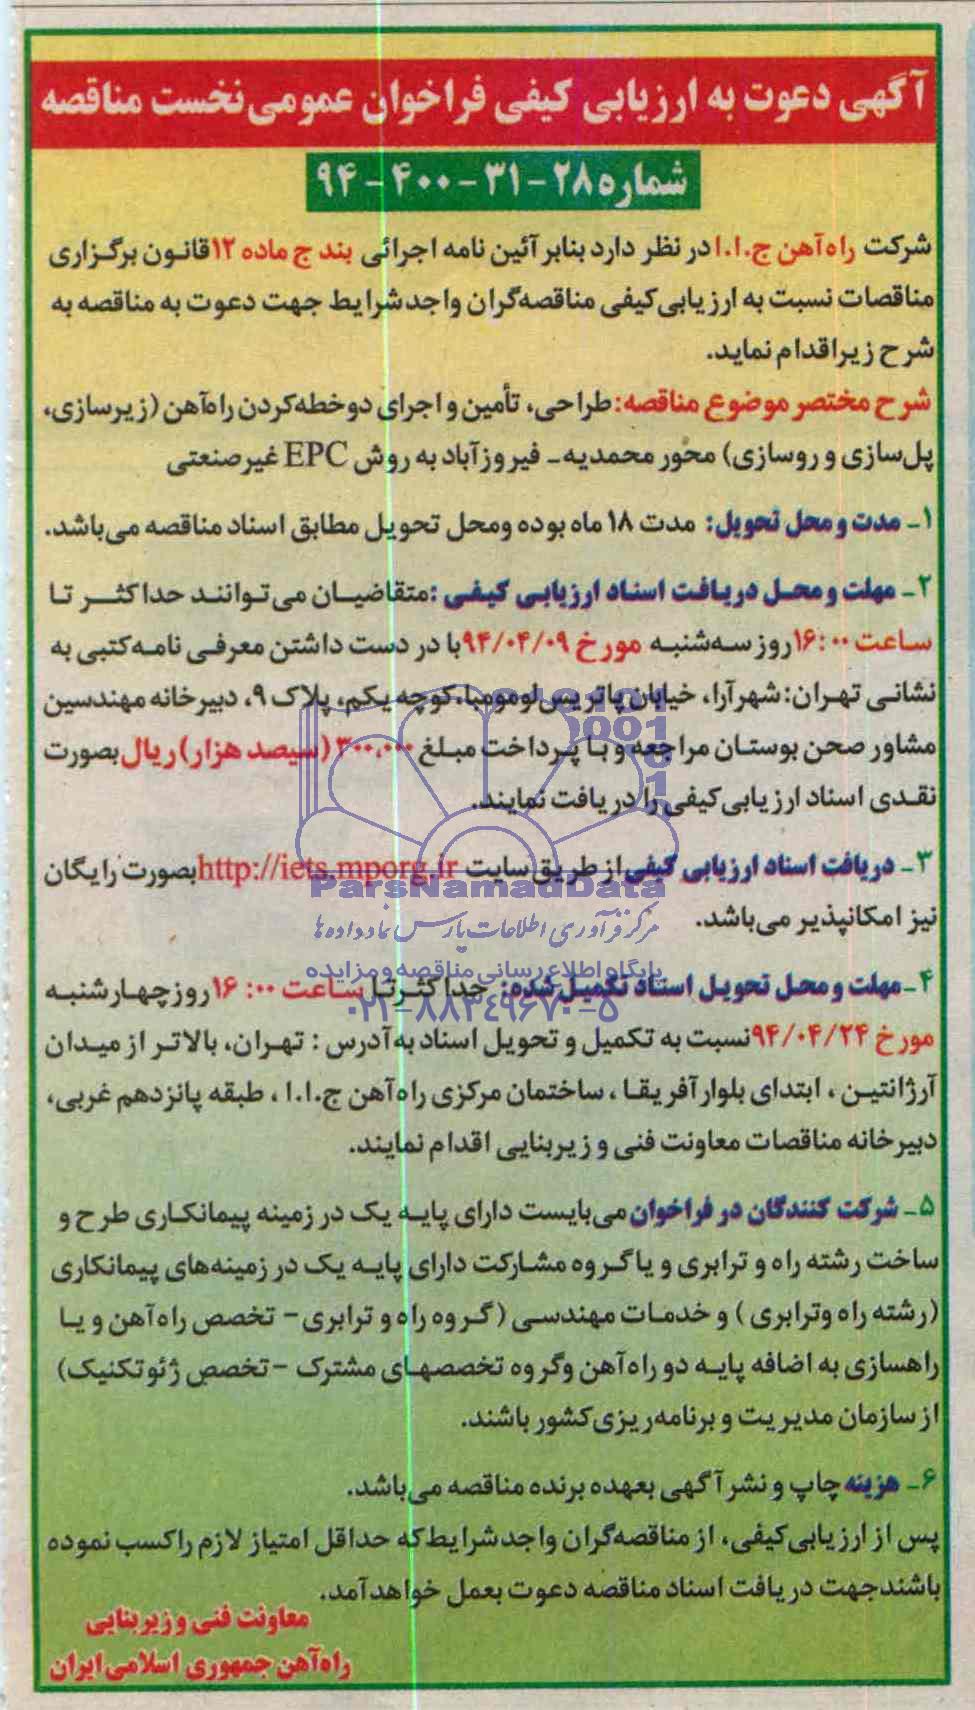 آگهی دعوت به ارزیابی کیفی فراخوان عمومی نخست مناقصه
شماره ۲۸-۳۱-۴۰۰-۹۴
شرکت راه‌آهن ج.ا.ا در نظر دارد بنابر آئین نامه اجرائی بند ج ماده ۱۲ قانون برگزاری
مناقصات نسبت به ارزیابی کیفی مناقصه‌گران واجد شرایط جهت دعوت به مناقصه به
شرح زیر اقدام نماید.
شرح مختصر موضوع مناقصه: طراحی، تأمین و اجرای دوخطه‌کردن راه‌آهن (زیرسازی،
پل‌سازی و روسازی) محور محمدیه- فیروزآباد به روش EPC غیرصنعتی
۱- مدت و محل تحویل: مدت ۱۸ ماه بوده ومحل تحویل مطابق اسناد مناقصه می‌باشد.
۲- مهلت و محل دریافت اسناد ارزیابی کیفی: متقاضیان می‌توانند حداکثر تا
ساعت ۱۶:۰۰ روز سه‌شنبه مورخ ۹۴/۰۴/۰۹ با در دست داشتن معرفی نامه کتبی به
نشانی تهران: شهرآرا، خیابان پاتریس لومومبا، کوچه یکم، پلاک ۹، دبیرخانه مهندسین
مشاور صحن بوستان مراجعه و با پرداخت مبلغ ۳۰۰,۰۰۰ (سیصد هزار) ریال بصورت
نقدی اسناد ارزیابی کیفی را دریافت نمایند.
۳- دریافت اسناد ارزیابی کیفی از طریق سایت http://iets.mporg.ir بصورت رایگان
ParsNamadData
نیز امکانپذیر می‌باشد.
مرکز فرآوری اطلاعات پارس نماد داده‌ها
پایگاه اطلاع رسانی مناقصه و مزایده
۴- مهلت و محل تحویل اسناد تکمیل شده: حداکثر تا ساعت ۱۶:۰۰ روز چهارشنبه
۰۲۱-۸۸۳۴۹۶۷۰-۵
مورخ ۹۴/۰۴/۲۴ نسبت به تکمیل و تحویل اسناد به آدرس : تهران، بالاتر از میدان
آرژانتین ، ابتدای بلوار آفریقا ، ساختمان مرکزی راه‌آهن ج.ا.ا ، طبقه پانزدهم غربی،
دبیرخانه مناقصات معاونت فنی و زیربنایی اقدام نمایند.
۵- شرکت کنندگان در فراخوان می‌بایست دارای پایه یک در زمینه پیمانکاری طرح و
ساخت رشته راه و ترابری و یا گروه مشارکت دارای پایه یک در زمینه‌های پیمانکاری
(رشته راه وترابری ) و خدمات مهندسی (گروه راه و ترابری- تخصص راه‌آهن و یا
راهسازی به اضافه پایه دو راه‌آهن وگروه تخصصهای مشترک -تخصص ژئوتکنیک)
از سازمان مدیریت و برنامه‌ریزی کشور باشند.
۶- هزینه چاپ و نشر آگهی بعهده برنده مناقصه می‌باشد.
پس از ارزیابی کیفی، از مناقصه‌گران واجد شرایط که حداقل امتیاز لازم را کسب نموده
باشند جهت دریافت اسناد مناقصه دعوت بعمل خواهد آمد.
معاونت فنی و زیربنایی
راه‌آهن جمهوری اسلامی ایران